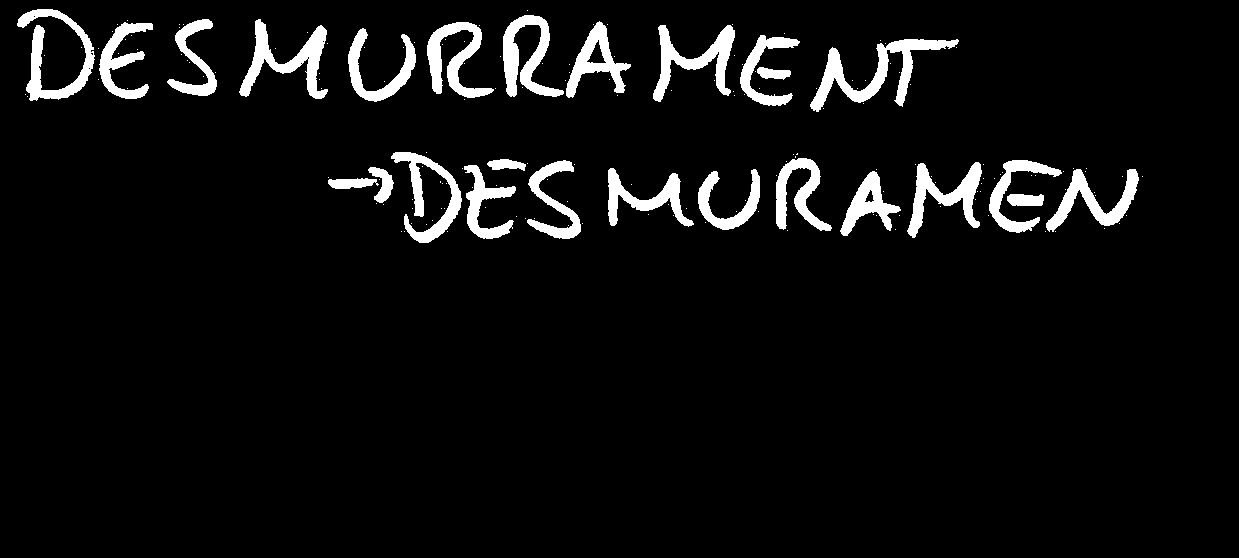 DESMURRAMENT
→DESMURAMEN